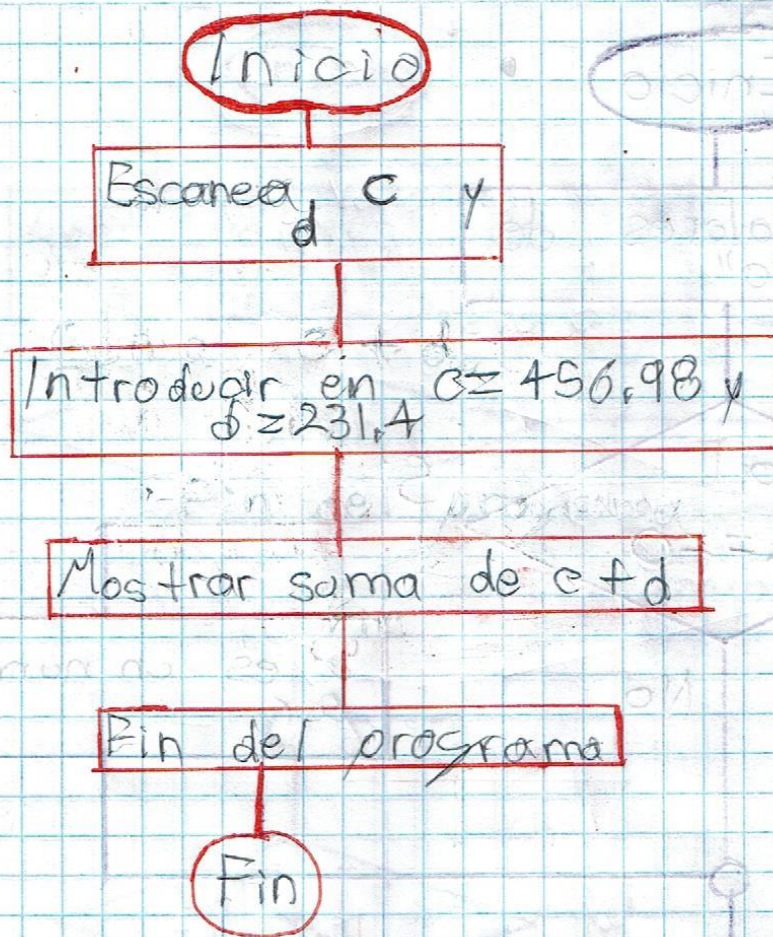 Inicio
Escanea c y
d
Introducir en c=456.98 y
d=231.4
Mostrar suma de c+d
Fin del programa
Fin